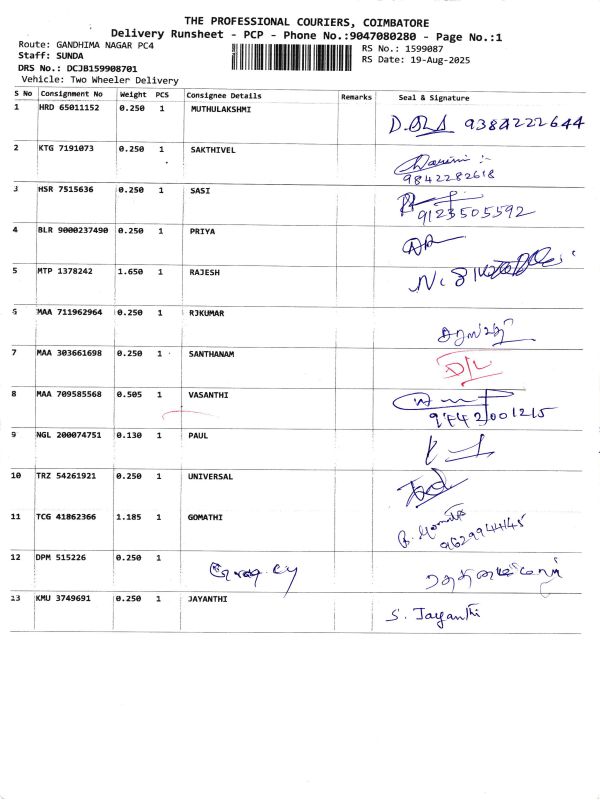 THE PROFESSIONAL COURIERS, COIMBATORE
Delivery Runsheet - PCP - Phone No.:9047080280 - Page No.:1
Route: GANDHIMA NAGAR PC4
RS No.: 1599087
Staff: SUNDA
RS Date: 19-Aug-2025
DRS No.: DCJB159908701
Vehicle: Two Wheeler Delivery
S No Consignment No Weight PCS Consignee Details Remarks Seal & Signature
1 HRD 65011152 0.250 1 MUTHULAKSHMI
9384222644
2 KTG 7191073 0.250 1 SAKTHIVEL
9842282618
3 HSR 7515636 0.250 1 SASI
9123505592
4 BLR 9000237490 0.250 1 PRIYA
5 MTP 1378242 1.650 1 RAJESH
6 MAA 711962964 0.250 1 RJKUMAR
7 MAA 303661698 0.250 1 SANTHANAM D/L
8 MAA 709585568 0.505 1 VASANTHI
9442001215
9 NGL 200074751 0.130 1 PAUL
10 TRZ 54261921 0.250 1 UNIVERSAL
11 TCG 41862366 1.185 1 GOMATHI
9629944145
12 DPM 515226 0.250 1
13 KMU 3749691 0.250 1 JAYANTHI S. Jayanthi